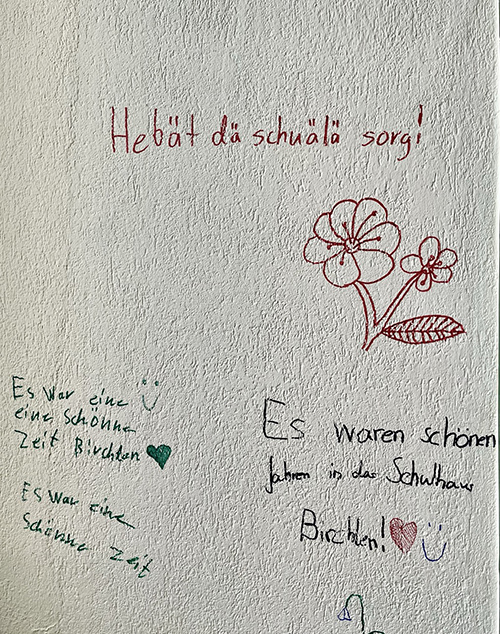 Hebät dä schuälä sorg!
Es war eine
eine schönne
Zeit Birchlen
Es war eine
schönne Zeit
Es waren schönen
Jahren in das Schulhaus
Birchlen!